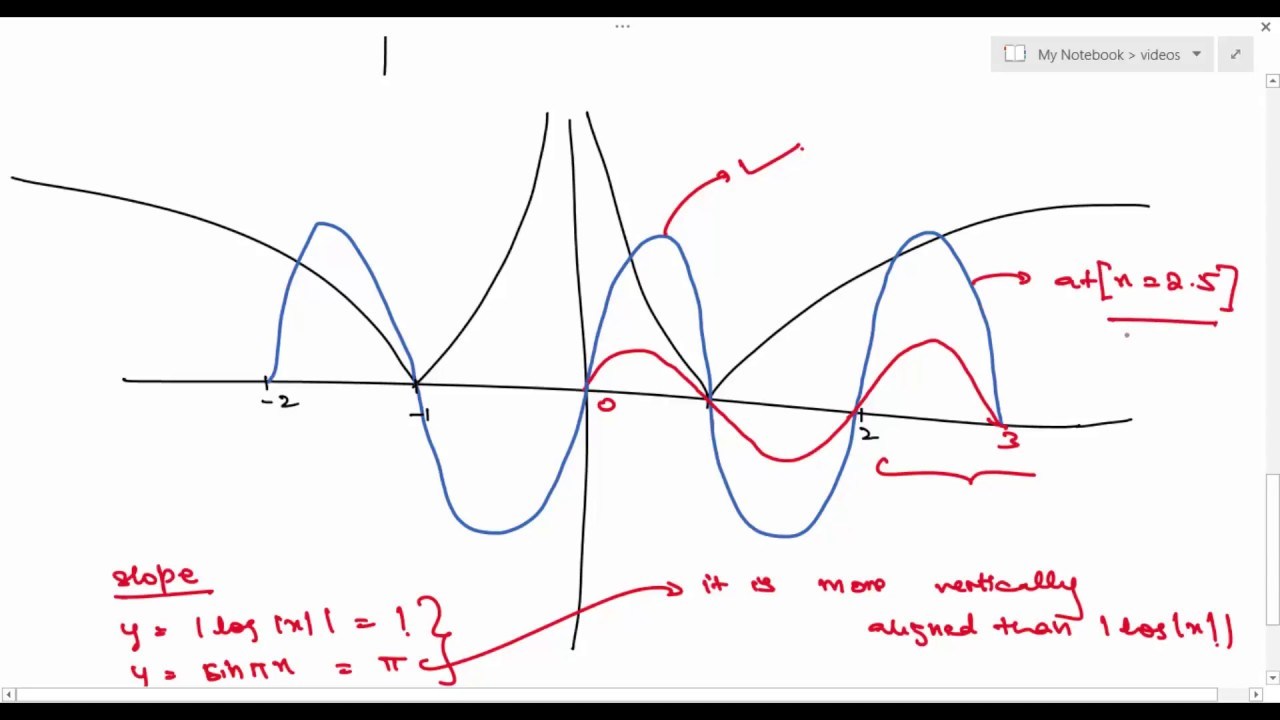 My Notebook > videos
at [x = 2.5]
-2
-1
0
2
3
slope
y = | log |x| | = 1
y = sin πx = π
it is more vertically
aligned than | log |x| |